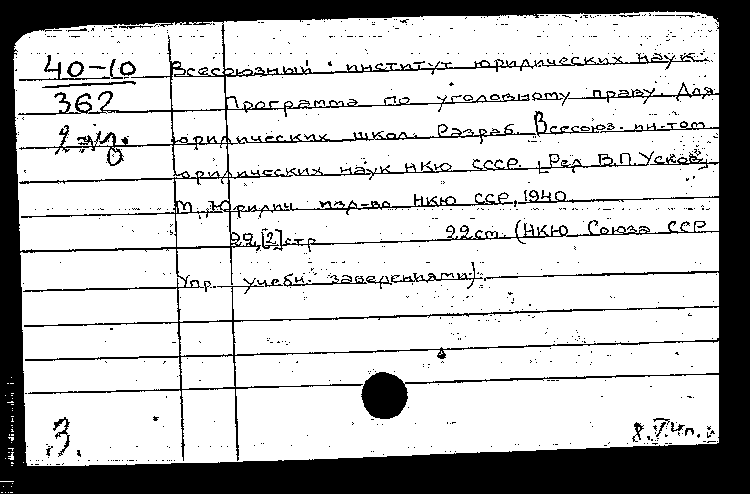 40-10
362
Всесоюзный институт юридических наук.
Программа по уголовному праву. Для
юридических школ. Разраб. Всесоюз. ин-том
юридических наук НКЮ СССР. [Ред. В.П. Усков]
М., Юридич. изд-во НКЮ ССР, 1940.
22,[2]стр 22см. (НКЮ Союза ССР
Упр. учебн. заведениями).
3.